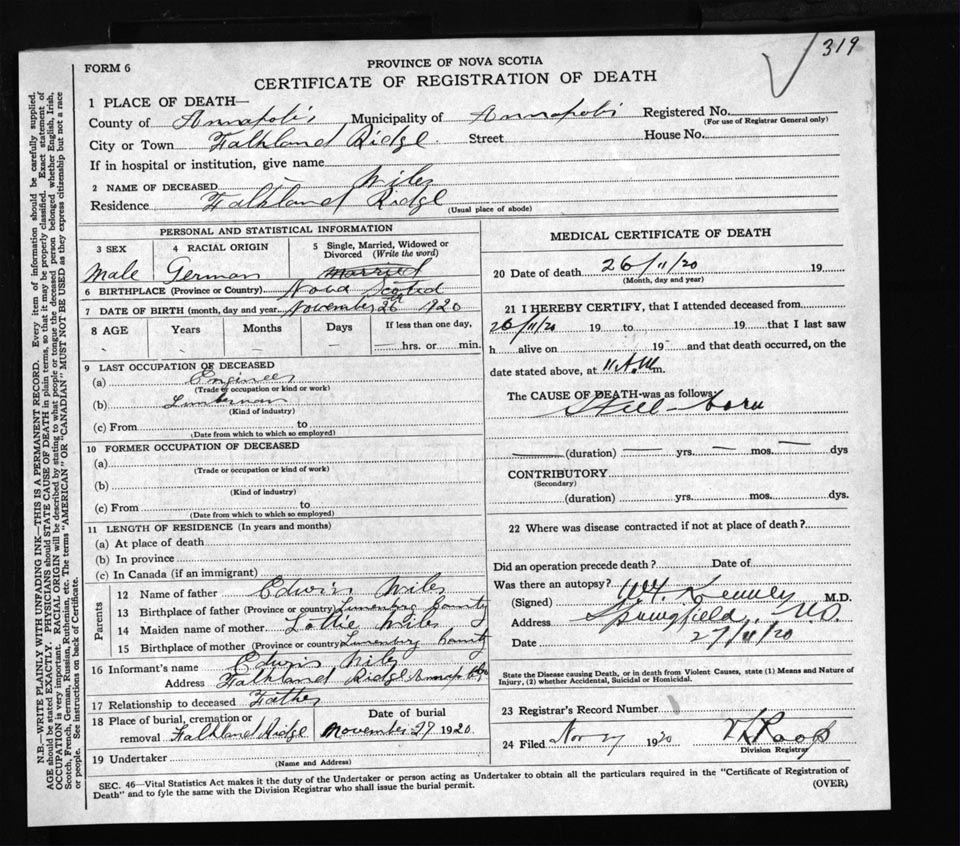 319
FORM 6
PROVINCE OF NOVA SCOTIA
CERTIFICATE OF REGISTRATION OF DEATH
1 PLACE OF DEATH—
County of Annapolis Municipality of Annapolis Registered No.
(For use of Registrar General only)
City or Town Falkland Ridge Street House No.
If in hospital or institution, give name
2 NAME OF DECEASED Wiles
Residence Falkland Ridge
(Usual place of abode)
PERSONAL AND STATISTICAL INFORMATION
3 SEX 4 RACIAL ORIGIN 5 Single, Married, Widowed or
Divorced (Write the word)
Male German Married
6 BIRTHPLACE (Province or Country) Nova Scotia
7 DATE OF BIRTH (month, day and year November 26 1920
8 AGE Years Months Days If less than one day,
hrs. or min.
9 LAST OCCUPATION OF DECEASED
(a) Engineer
(Trade or occupation or kind or work)
(b) Lumberman
(Kind of industry)
(c) From to
(Date from which to which so employed)
10 FORMER OCCUPATION OF DECEASED
(a)
(Trade or occupation or kind of work)
(b)
(Kind of industry)
(c) From to
(Date from which to which so employed)
11 LENGTH OF RESIDENCE (In years and months)
(a) At place of death
(b) In province
(c) In Canada (if an immigrant)
Parents
12 Name of father Edwin Wiles
13 Birthplace of father (Province or country) Lunenburg County
14 Maiden name of mother Lottie Wiles
15 Birthplace of mother (Province or country) Lunenburg County
16 Informant's name Edwin Wiles
Address Falkland Ridge Annap
17 Relationship to deceased Father
18 Place of burial, cremation or Date of burial
removal Falkland Ridge November 27 1920
19 Undertaker
(Name and Address)
MEDICAL CERTIFICATE OF DEATH
20 Date of death 26/11/20 19
(Month, day and year)
21 I HEREBY CERTIFY, that I attended deceased from
26/11/20 19 to 19 that I last saw
h alive on 19 and that death occurred, on the
date stated above, at 11 A.M. m.
The CAUSE OF DEATH was as follows:
Still-born
(duration) yrs. mos. dys
CONTRIBUTORY
(Secondary)
(duration) yrs. mos. dys.
22 Where was disease contracted if not at place of death?
Did an operation precede death? Date of
Was there an autopsy?
(Signed) Kenney M.D.
Address Springfield, N.S.
Date 27/11/20
State the Disease causing Death, or in death from Violent Causes, state (1) Means and Nature of
Injury, (2) whether Accidental, Suicidal or Homicidal.
23 Registrar's Record Number
24 Filed Nov 27 1920 Roop
Division Registrar
SEC. 46—Vital Statistics Act makes it the duty of the Undertaker or person acting as Undertaker to obtain all the particulars required in the "Certificate of Registration of
Death" and to fyle the same with the Division Registrar who shall issue the burial permit.
(OVER)
N.B.—WRITE PLAINLY WITH UNFADING INK—THIS IS A PERMANENT RECORD. Every item of information should be carefully supplied.
AGE should be stated EXACTLY. PHYSICIANS should STATE CAUSE OF DEATH in plain terms, so that it may be properly classified. Exact statement of
OCCUPATION is very important. RACIAL ORIGIN will be described by stating to what people or tongue the deceased person belonged whether English, Irish,
Scotch, French, German, Russian, Ruthenian, etc. The terms "AMERICAN" OR "CANADIAN" MUST NOT BE USED as they express citizenship but not a race
or people. See instructions on back of Certificate.